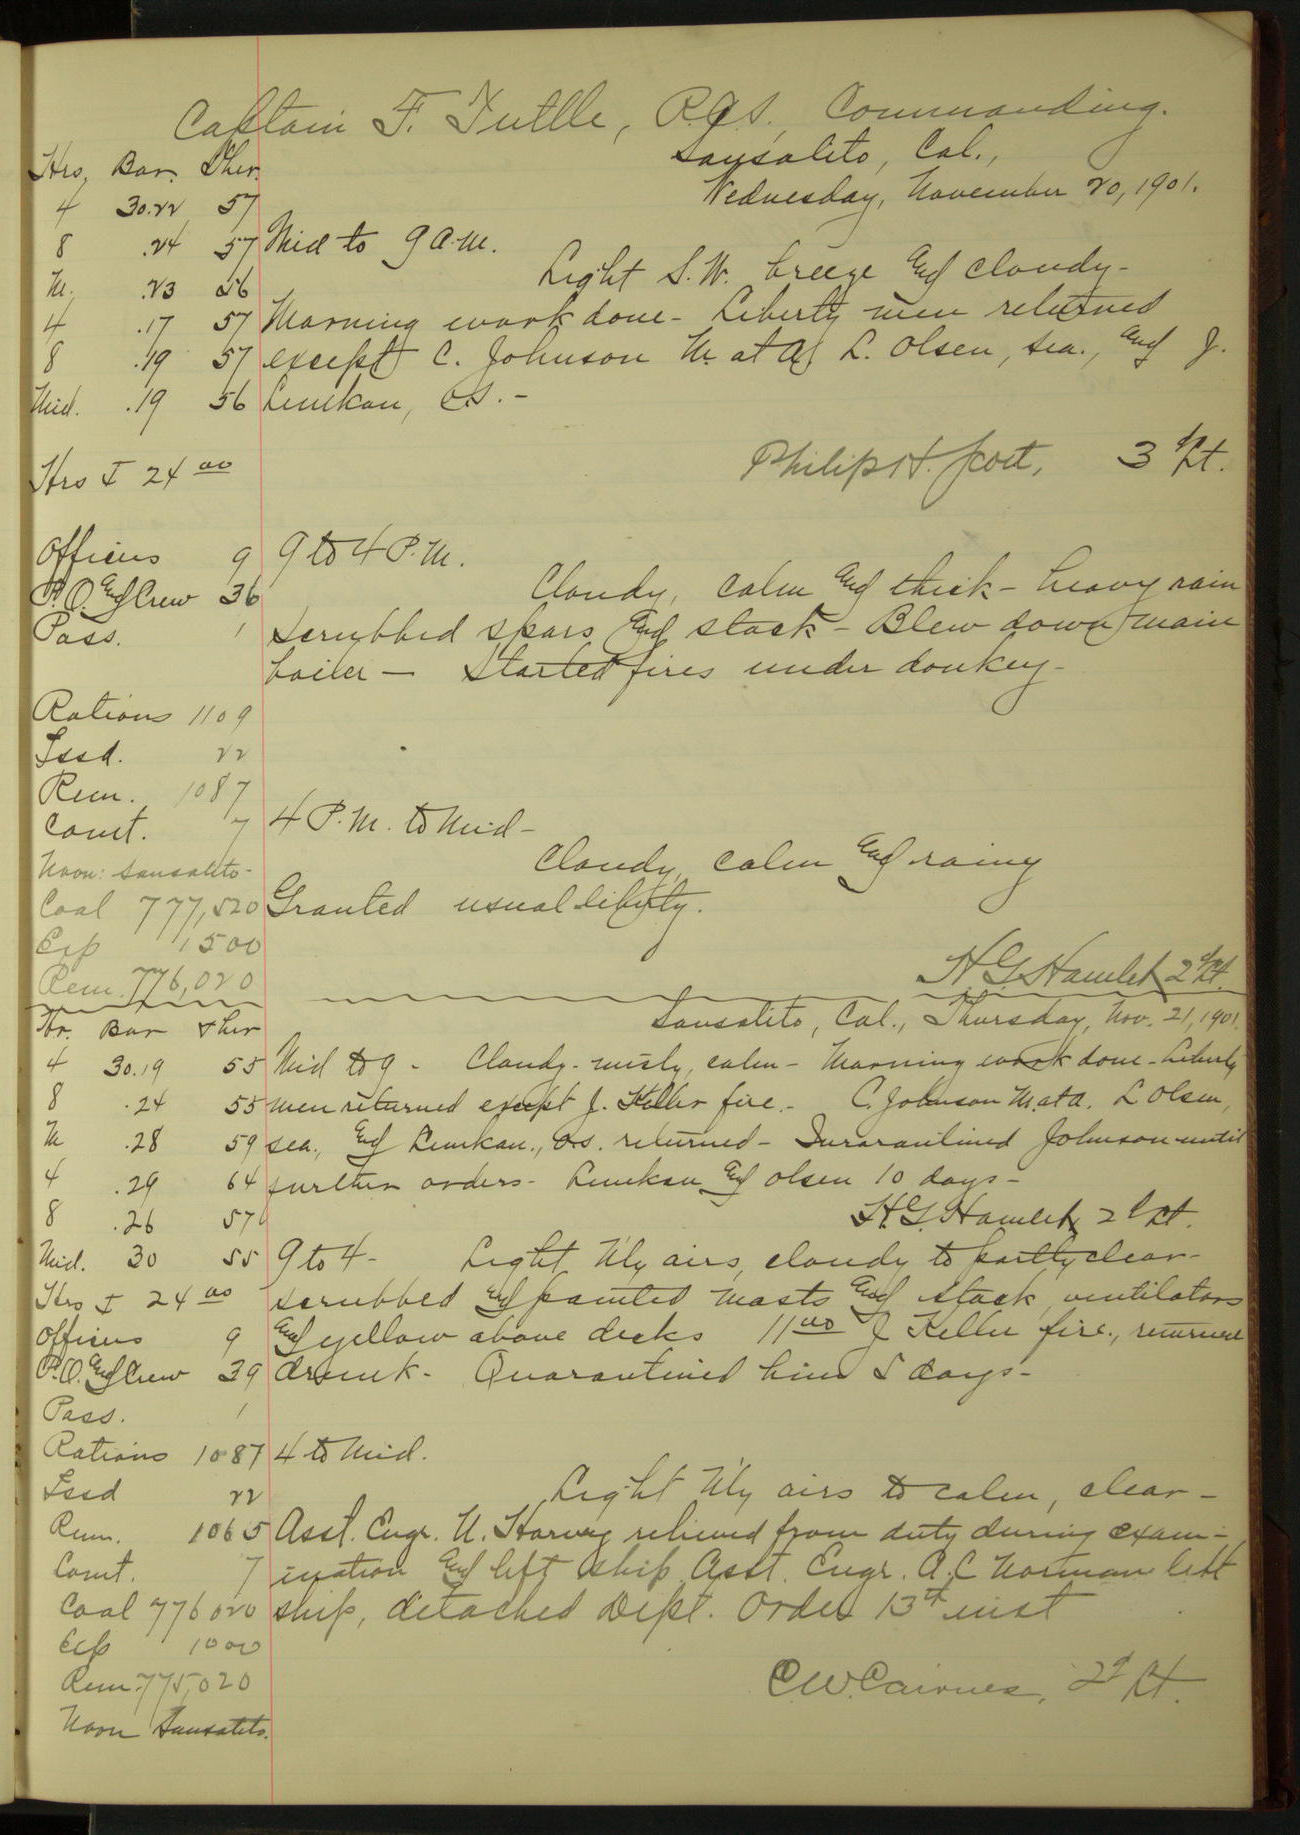 Captain F. Tuttle, R.C.S., Commanding.
Sausalito, Cal.,
Wednesday, November 20, 1901.
Hrs. Bar. Ther.
4 30.22 57
8 .24 57
M. .23 56
4 .17 57
8 .19 57
Mid. .19 56
Hrs I 24 00
Officers 9
P.O. and Crew 36
Pass. 1
Rations 1109
Issd. 22
Rem. 1087
Comt. 7
Noon: Sausalito-
Coal 777,520
Exp 1500
Rem. 776,020
Mid to 9 A.M.
Light S.W. breeze and cloudy-
Morning work done- Liberty men returned
except C. Johnson M. at A, L. Olsen, sea., and J.
Linekan, O.S.-
Philip H. Scott, 3d Lt.
9 to 4 P.M.
Cloudy, calm and thick- heavy rain
scrubbed spars and stack- Blew down main
boiler- Started fires under donkey-
4 P.M. to Mid-
Cloudy, calm and rainy
Granted usual liberty.
H G Hamlet 2d Lt.
Sausalito, Cal., Thursday, Nov. 21, 1901.
Hr. Bar Ther
4 30.19 55
8 .24 55
M .28 59
4 .29 64
8 .26 57
Mid. 30 55
Hrs I 24 00
Officers 9
P.O. and Crew 39
Pass. 1
Rations 1087
Issd 22
Rem. 1065
Comt. 7
Coal 776020
Exp 1000
Rem. 775,020
Noon Sausalito.
Mid to 9- Cloudy- misty, calm- Morning work done- Liberty
men returned except J. Keller fire.- C. Johnson M. at A. L Olsen,
sea., and Linekan., o.s. returned- Quarantined Johnson until
further orders- Linekan and Olsen 10 days-
H.G. Hamlet 2d Lt.
9 to 4- Light N'ly airs, cloudy to partly clear-
scrubbed and painted masts and stack, ventilators
and yellow above decks 11 00 J Keller fire., returned
drunk- Quarantined him 5 days-
4 to Mid.
Light N'ly airs to calm, clear-
Asst. Engr. U. Harvey relieved from duty during exam-
ination and left ship Asst. Engr. A.C Norman left
ship, detached Dept. Order 13th inst
C.W. Cairnes, 2d Lt.